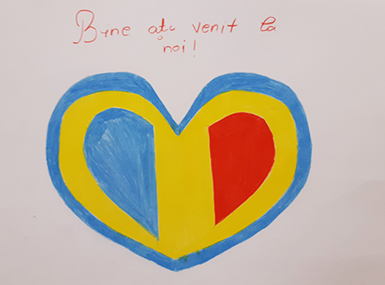 Bine ați venit la
noi!